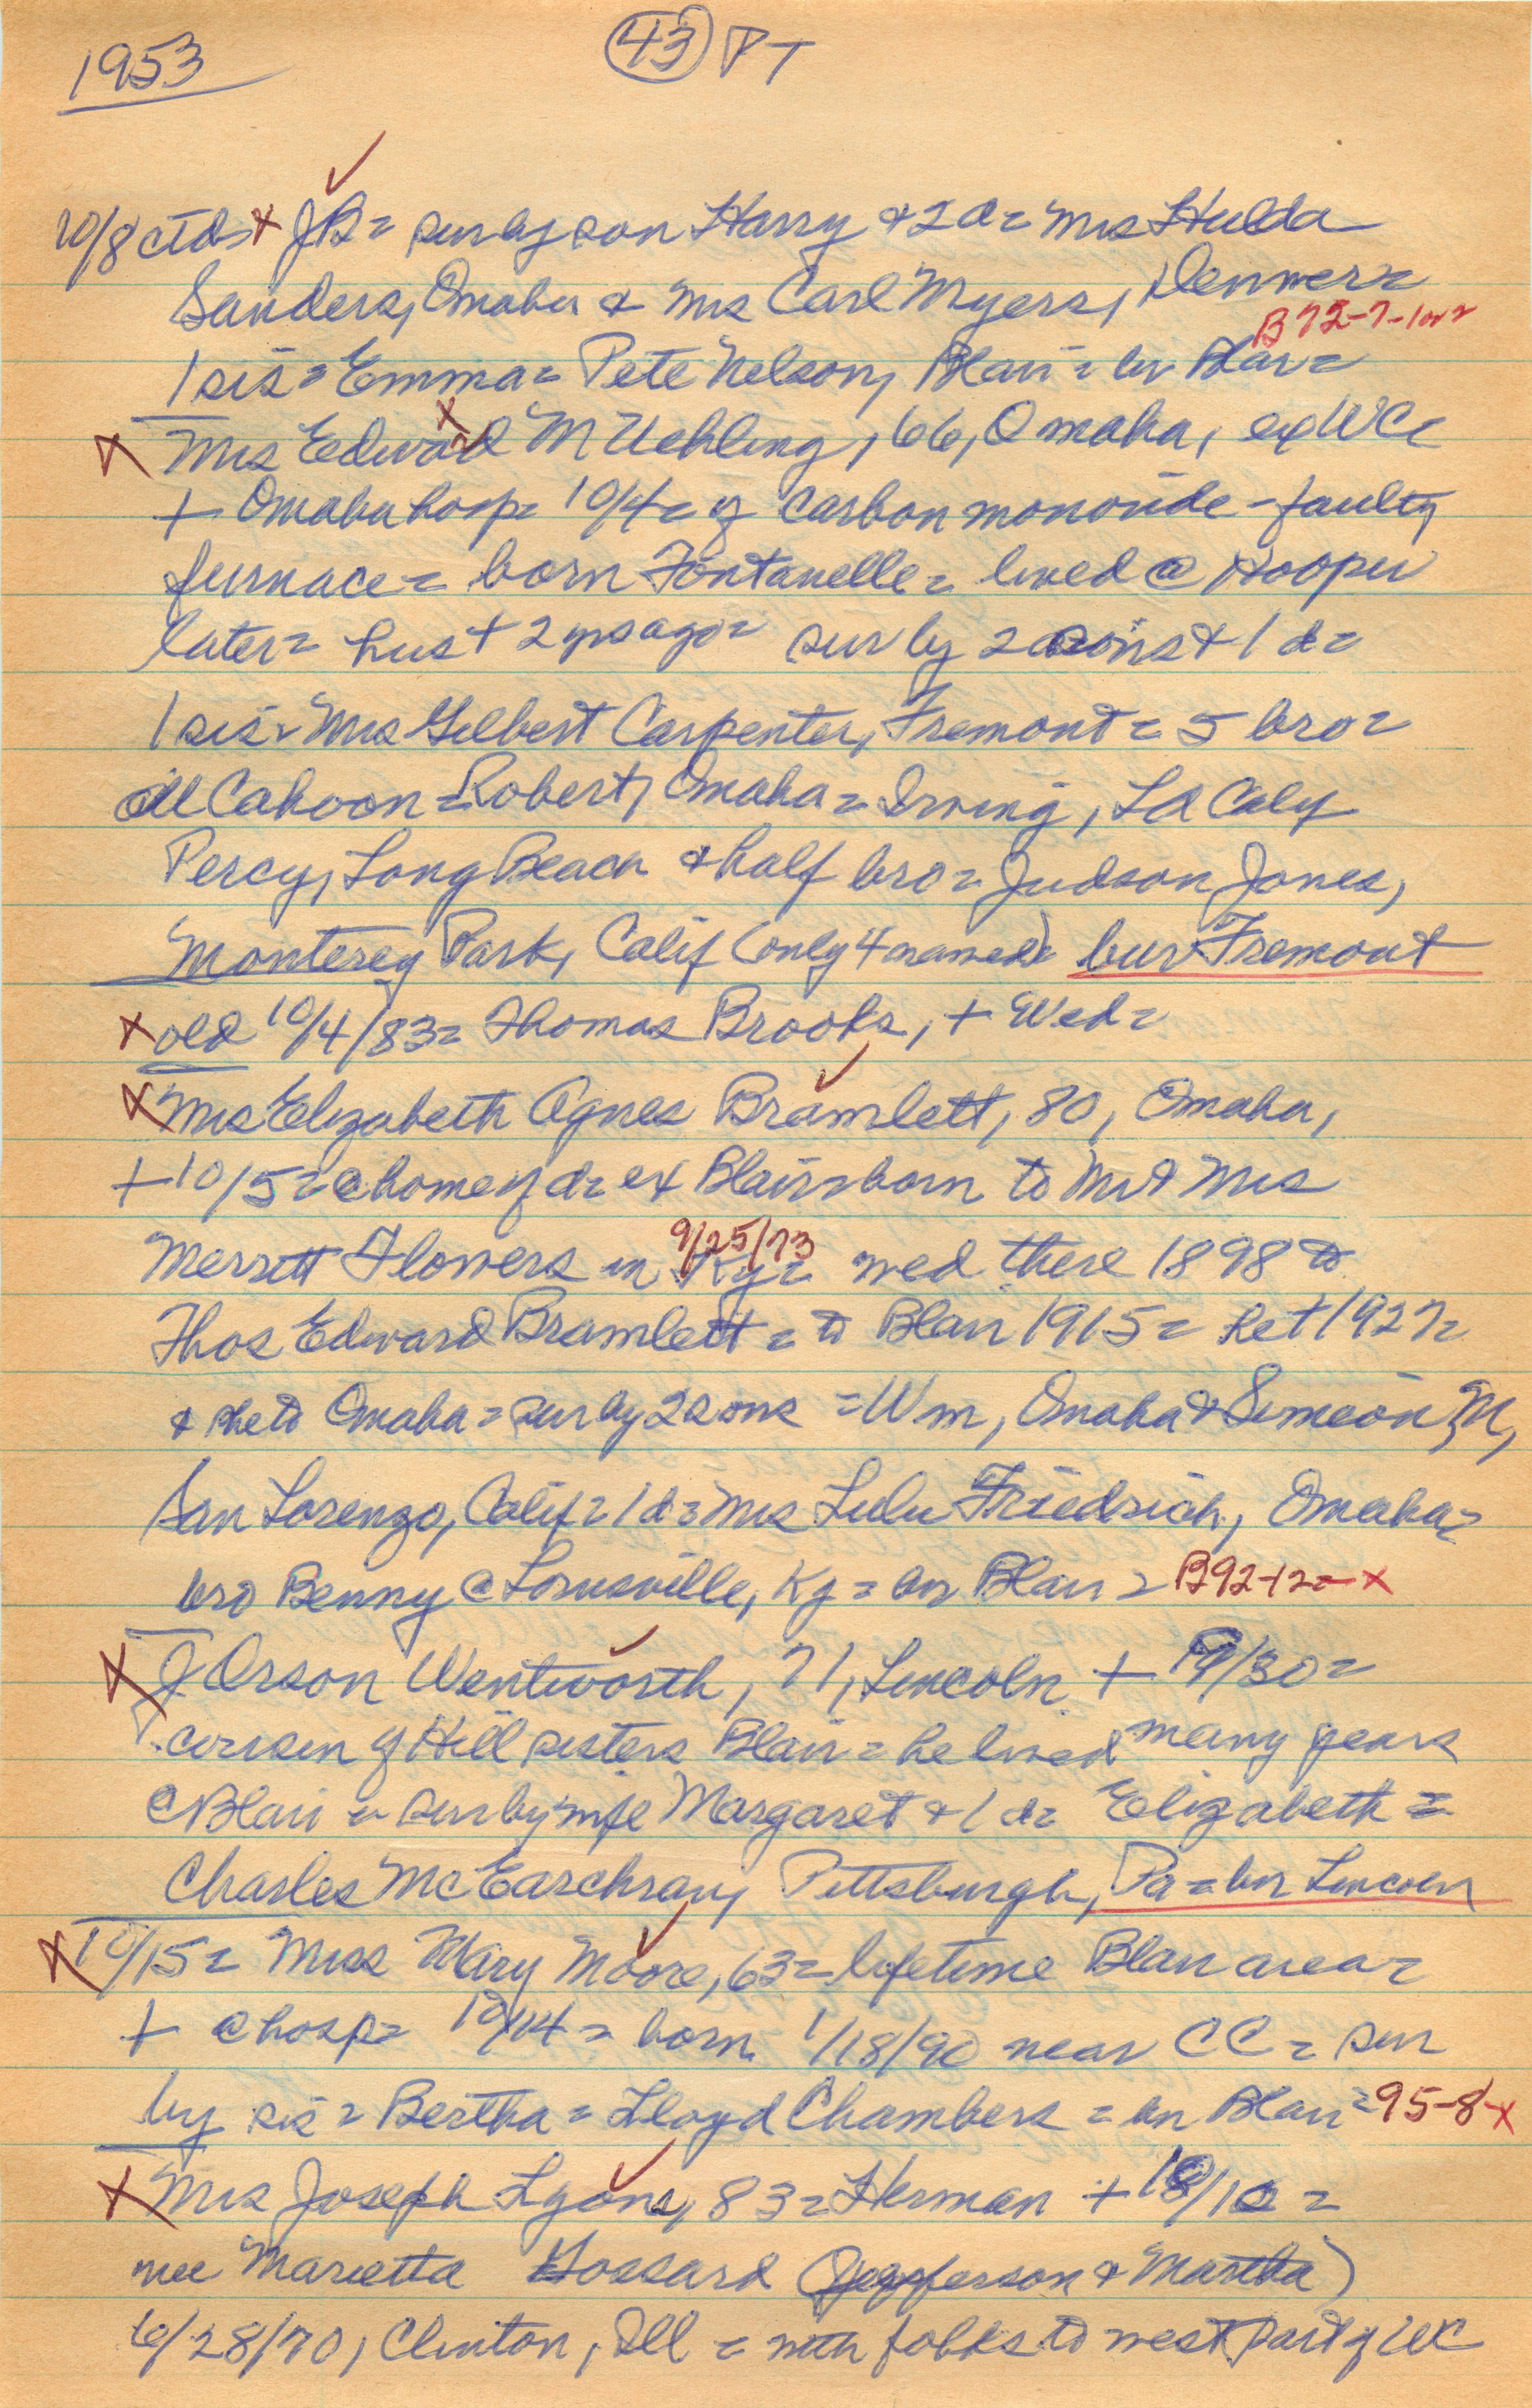 1953
43 PT
10/8 ctd = x JB = sur by son Harry + 2 d = Mrs Hulda
Sanders, Omaha & Mrs Carl Myers, Denver =
B72-7-1or2
1 sis = Emma = Pete Nelson, Blair = bur Blair =
x Mrs Edward M Uehling, 66, Omaha, ex WC =
+ Omaha hosp = 10/4 = of carbon monoxide - faulty
furnace = born Fontanelle = lived @ Hooper
later = hus + 2 yrs ago = sur by 2 sons & 1 d =
1 sis = Mrs Gilbert Carpenter, Fremont = 5 bro =
all Cahoon = Robert, Omaha = Irving, LA Calif
Percy, Long Beach & half bro = Judson Jones,
Monterey Park, Calif (only 4 named) bur Fremont
x old 10/4/83 = Thomas Brooks, + Wed =
x Mrs Elizabeth Agnes Bramlett, 80, Omaha,
+ 10/5 = @ home of d = ex Blair = born to Mr & Mrs
9/25/73
Merrett Flowers in Ky = wed there 1898 to
Thos Edward Bramlett = to Blair 1915 = he + 1927 =
& she to Omaha = sur by 2 sons = Wm, Omaha & Simeon M,
San Lorenzo, Calif = 1 d = Mrs Lulu Friedrich, Omaha =
bro Benny @ Louisville, Ky = bur Blair = B92-12 = x
x J Orson Wentworth, 71, Lincoln + 9/30 =
cousin of Hill sisters Blair = he lived many years
@ Blair = sur by wife Margaret & 1 d = Elizabeth =
Charles McEarchran, Pittsburgh, Pa = bur Lincoln
x 10/15 = Miss Mary Moore, 63 = lifetime Blair area =
+ @ hosp = 10/14 = born 1/18/90 near CC = sur
by sis = Bertha = Lloyd Chambers = bur Blair = 95-8-x
x Mrs Joseph Lyons, 83 = Herman + 10/10 =
nee Marietta Gossard (Jefferson & Martha)
6/28/70, Clinton, Ill = with folks to west part of WC